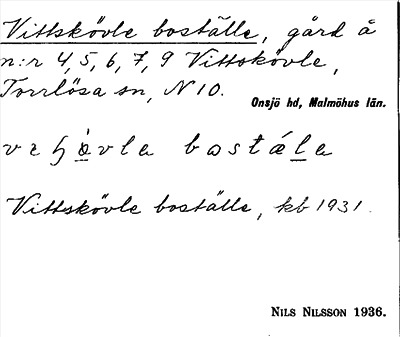 Vittskövle boställe, gård å
n:r 4, 5, 6, 7, 9 Vittskövle,
Torrlösa sn, N 10.
Onsjö hd, Malmöhus län.
bostäle
Vittskövle boställe, kb 1931.
NILS NILSSON 1936.